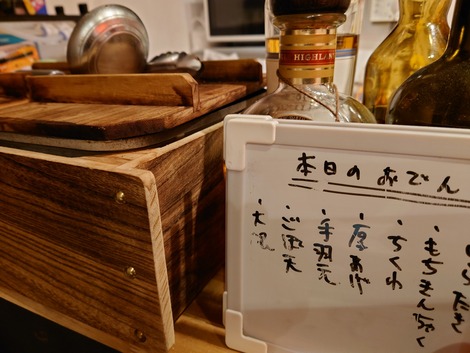 本日のおでん
・もちきんちゃく
・ちくわ
・厚あげ
・手羽元
・ごぼ天
・大根
HIGHL